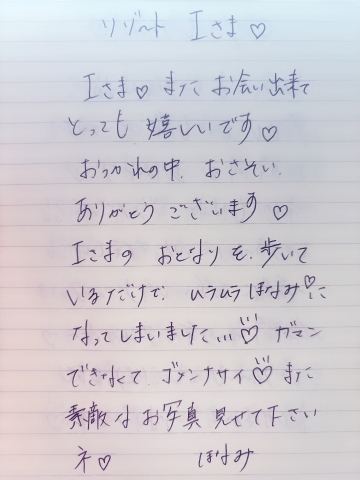 リゾート Iさま♡
Iさま♡ また お会い出来て
とっても 嬉しいです♡
おつかれの中、おさそい、
ありがとう ございます♡
Iさまの おとなり を、歩いて
いるだけで、ムラムラ ほなみ♡に
なってしまいました...♡ ガマン
できなくて、ゴメンナサイ♡ また
素敵なお写真 見せて下さい
ネ♡ ほなみ